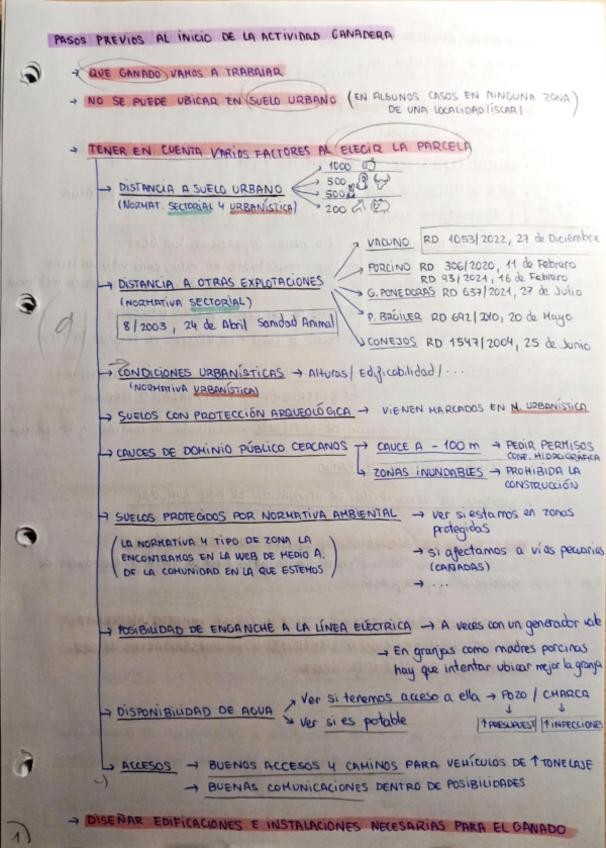 PASOS PREVIOS AL INICIO DE LA ACTIVIDAD GANADERA
→ QUE GANADO VAMOS A TRABAJAR
→ NO SE PUEDE UBICAR EN SUELO URBANO (EN ALGUNOS CASOS EN NINGUNA ZONA
DE UNA LOCALIDAD (ISCAR)
→ TENER EN CUENTA VARIOS FACTORES AL ELEGIR LA PARCELA
→ 1000
→ DISTANCIA A SUELO URBANO → 500
(NORMAT. SECTORIAL Y URBANÍSTICA) → 500
→ 200
→ VACUNO RD 1053/2022, 27 de Diciembre
→ PORCINO RD 306/2020, 11 de Febrero
RD 93/2021, 16 de Febrero
→ DISTANCIA A OTRAS EXPLOTACIONES
(NORMATIVA SECTORIAL)
→ G. PONEDORAS RD 637/2021, 27 de Julio
8/2003, 24 de Abril Sanidad Animal
→ P. BRÓILER RD 692/2010, 20 de Mayo
→ CONEJOS RD 1547/2004, 25 de Junio
a)
→ CONDICIONES URBANÍSTICAS → Alturas / Edificabilidad / ...
(NORMATIVA URBANÍSTICA)
→ SUELOS CON PROTECCIÓN ARQUEOLÓGICA → VIENEN MARCADOS EN N. URBANÍSTICA
→ CAUCES DE DOMINIO PÚBLICO CERCANOS → CAUCE A - 100 m → PEDIR PERMISOS
CONF. HIDROGRÁFICA
→ ZONAS INUNDABLES → PROHIBIDA LA
CONSTRUCCIÓN
→ SUELOS PROTEGIDOS POR NORMATIVA AMBIENTAL → ver si estamos en zonas
protegidas
(LA NORMATIVA Y TIPO DE ZONA LA
ENCONTRAMOS EN LA WEB DE MEDIO A.
DE LA COMUNIDAD EN LA QUE ESTEMOS)
→ si afectamos a vías pecuarias
(CAÑADAS)
→ ...
→ POSIBILIDAD DE ENGANCHE A LA LÍNEA ELÉCTRICA → A veces con un generador vale
→ En granjas como madres porcinas
hay que intentar ubicar mejor la granja
→ DISPONIBILIDAD DE AGUA → Ver si tenemos acceso a ella → POZO / CHARCA
→ Ver si es potable
↑PRESUPUEST ↑INFECCIONES
→ ACCESOS → BUENOS ACCESOS Y CAMINOS PARA VEHÍCULOS DE ↑ TONELAJE
→ BUENAS COMUNICACIONES DENTRO DE POSIBILIDADES
→ DISEÑAR EDIFICACIONES E INSTALACIONES NECESARIAS PARA EL GANADO
1)